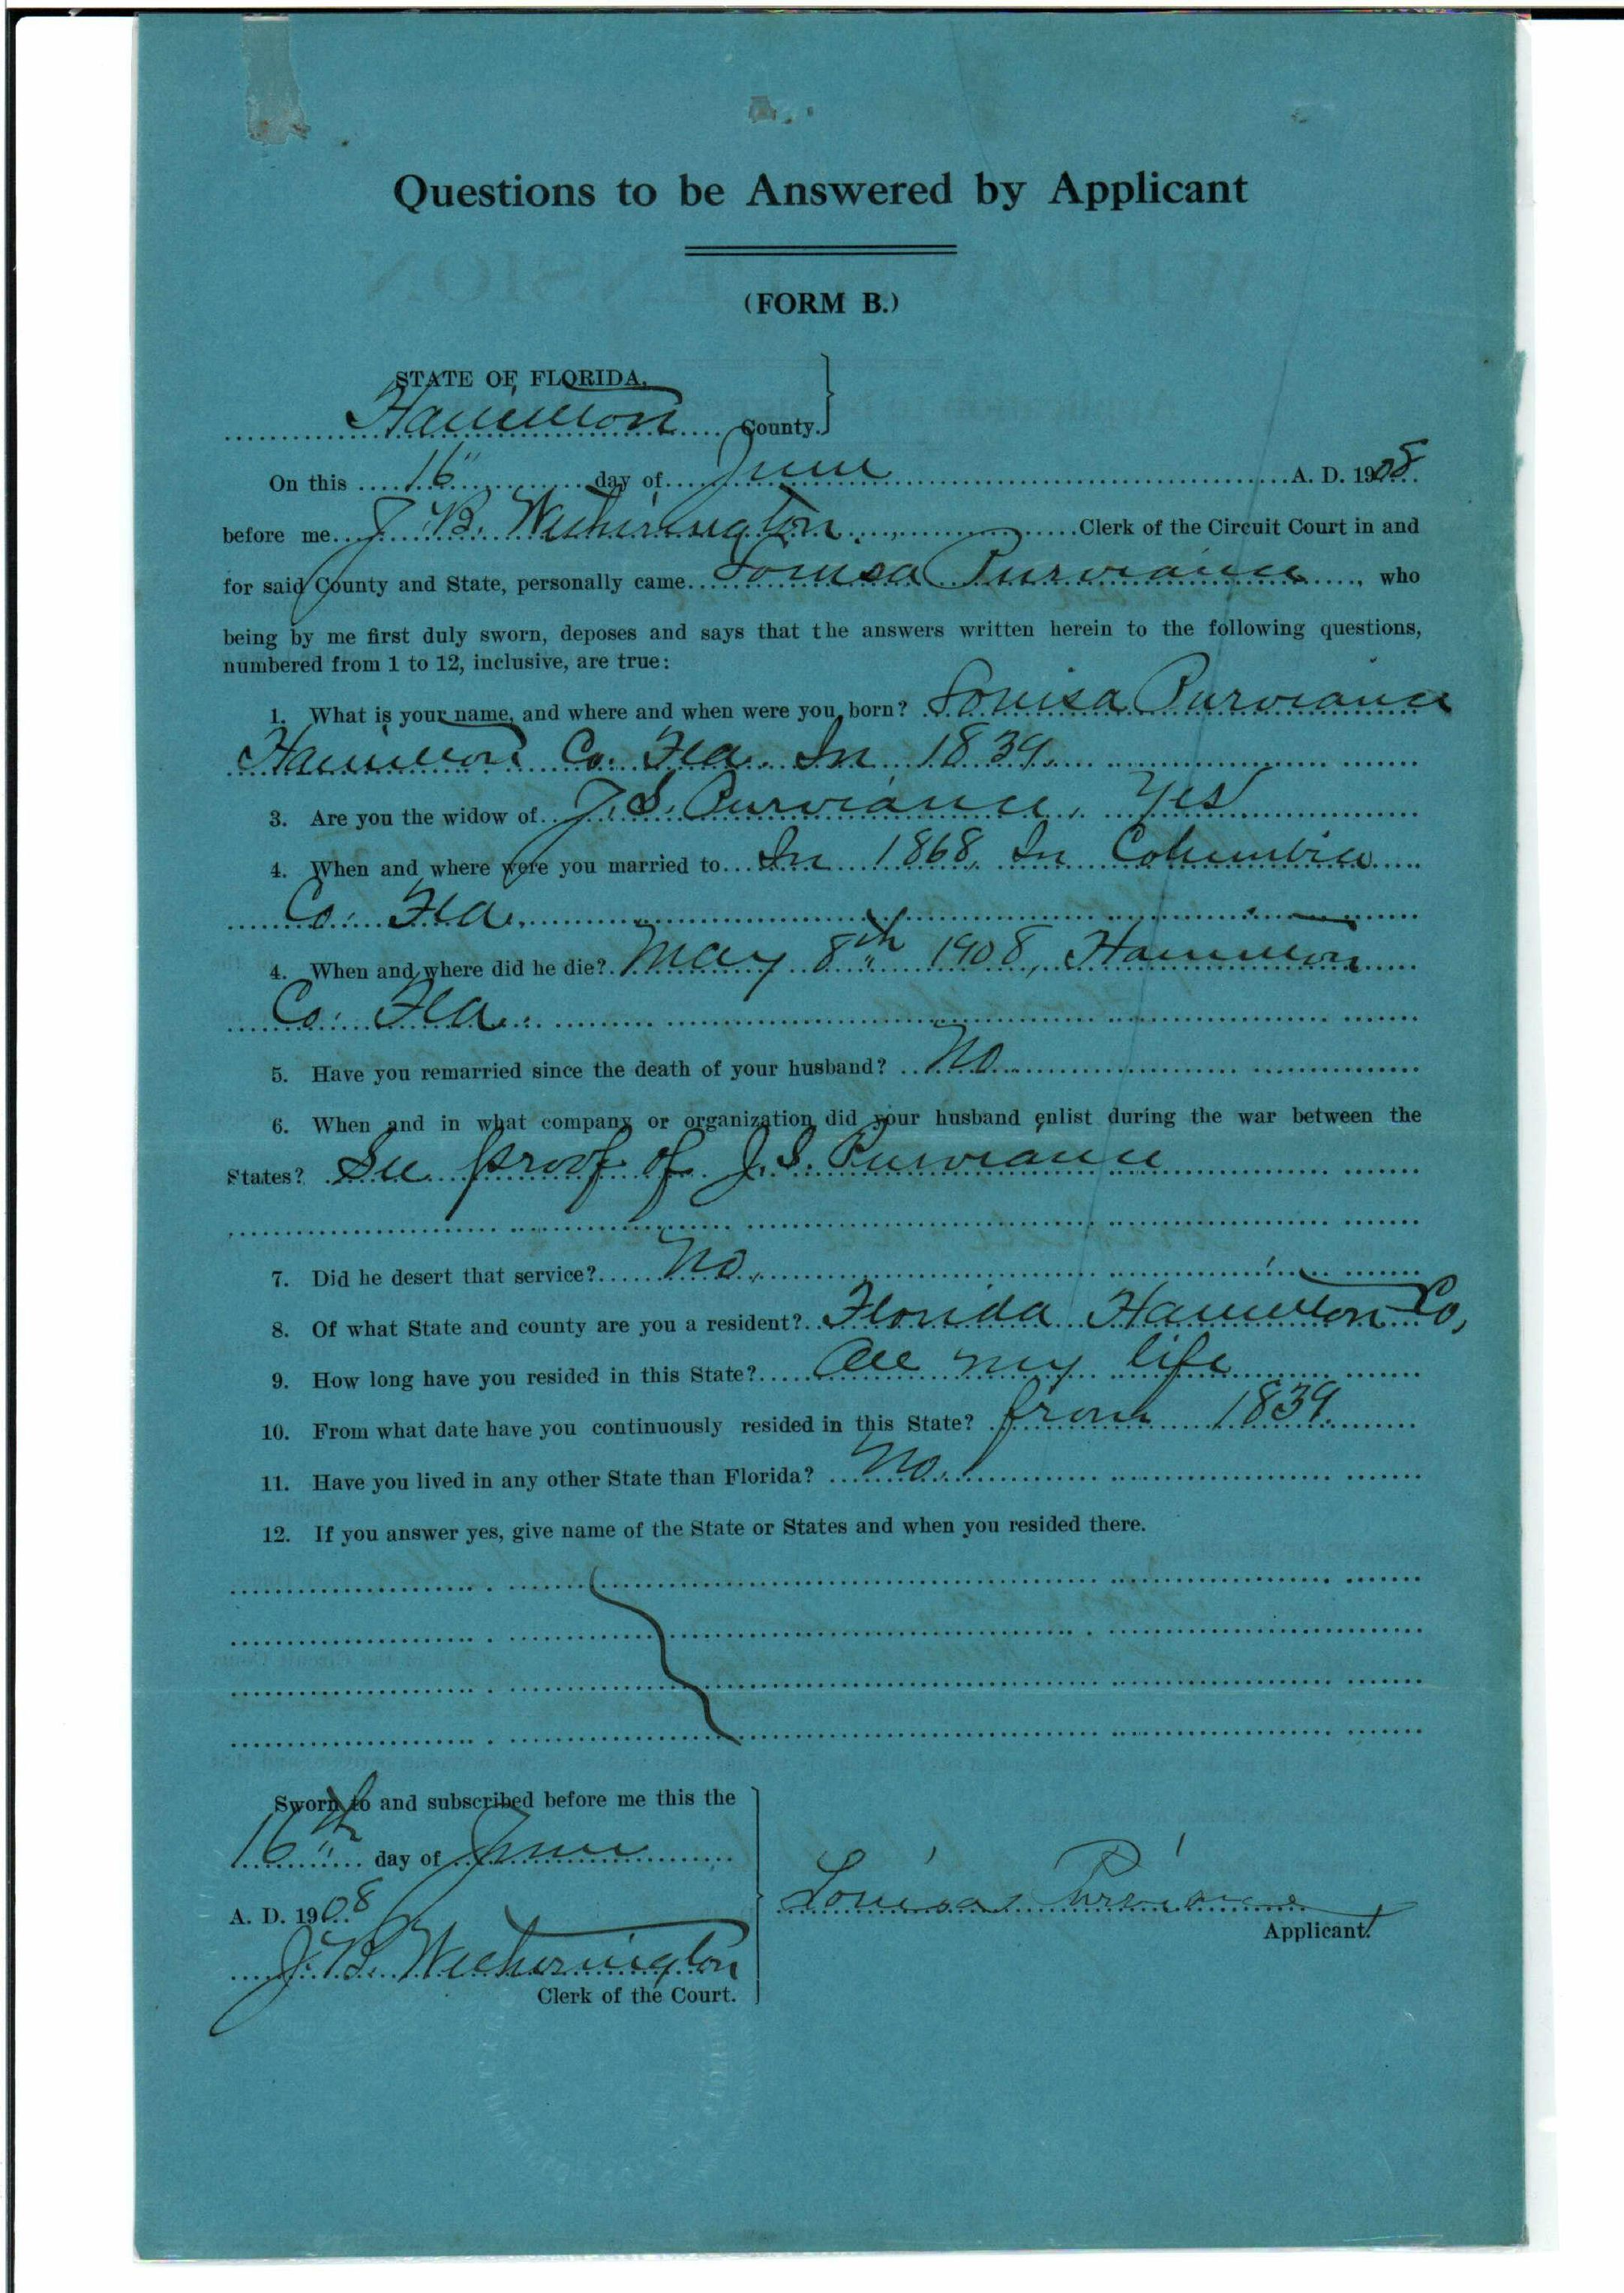 Questions to be Answered by Applicant
(FORM B.)
STATE OF FLORIDA,
Hamilton County.
On this 16" day of June A. D. 1908
before me J. B. Witherington Clerk of the Circuit Court in and
for said County and State, personally came Louisa Purviance, who
being by me first duly sworn, deposes and says that the answers written herein to the following questions,
numbered from 1 to 12, inclusive, are true:
1. What is your name, and where and when were you born? Louisa Purviance
Hamilton Co. Fla. In 1839.
3. Are you the widow of J. S. Purviance. Yes
4. When and where were you married to In 1868, In Columbia
Co. Fla.
4. When and where did he die? May 8th 1908, Hamilton
Co. Fla.
5. Have you remarried since the death of your husband? No
6. When and in what company or organization did your husband enlist during the war between the
States? See proof of J. S. Purviance
7. Did he desert that service? No.
8. Of what State and county are you a resident? Florida Hamilton Co,
9. How long have you resided in this State? All my life
10. From what date have you continuously resided in this State? from 1839.
11. Have you lived in any other State than Florida? No.
12. If you answer yes, give name of the State or States and when you resided there.
Sworn to and subscribed before me this the
16th day of June
A. D. 1908
Louisa Purviance
Applicant.
J. B. Witherington
Clerk of the Court.